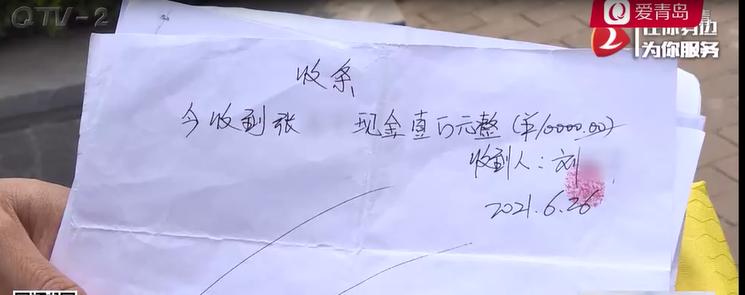 QTV-2
爱青岛
在你身边
为你服务
收条
今收到张 现金壹万元整(¥10000.00)
收到人:刘
2021.6.26